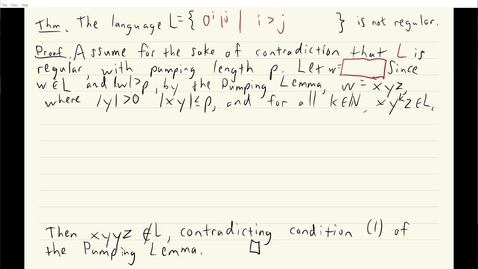 Thm. The language L={ 0^i 1^j | i>j } is not regular.
Proof. Assume for the sake of contradiction that L is
regular, with pumping length p. Let w= Since
w∈L and |w|>p, by the Pumping Lemma, w=xyz,
where |y|>0 |xy|≤p, and for all k∈ℕ, xy^kz∈L.
Then xyyz ∉L, contradicting condition (1) of
the Pumping Lemma. □